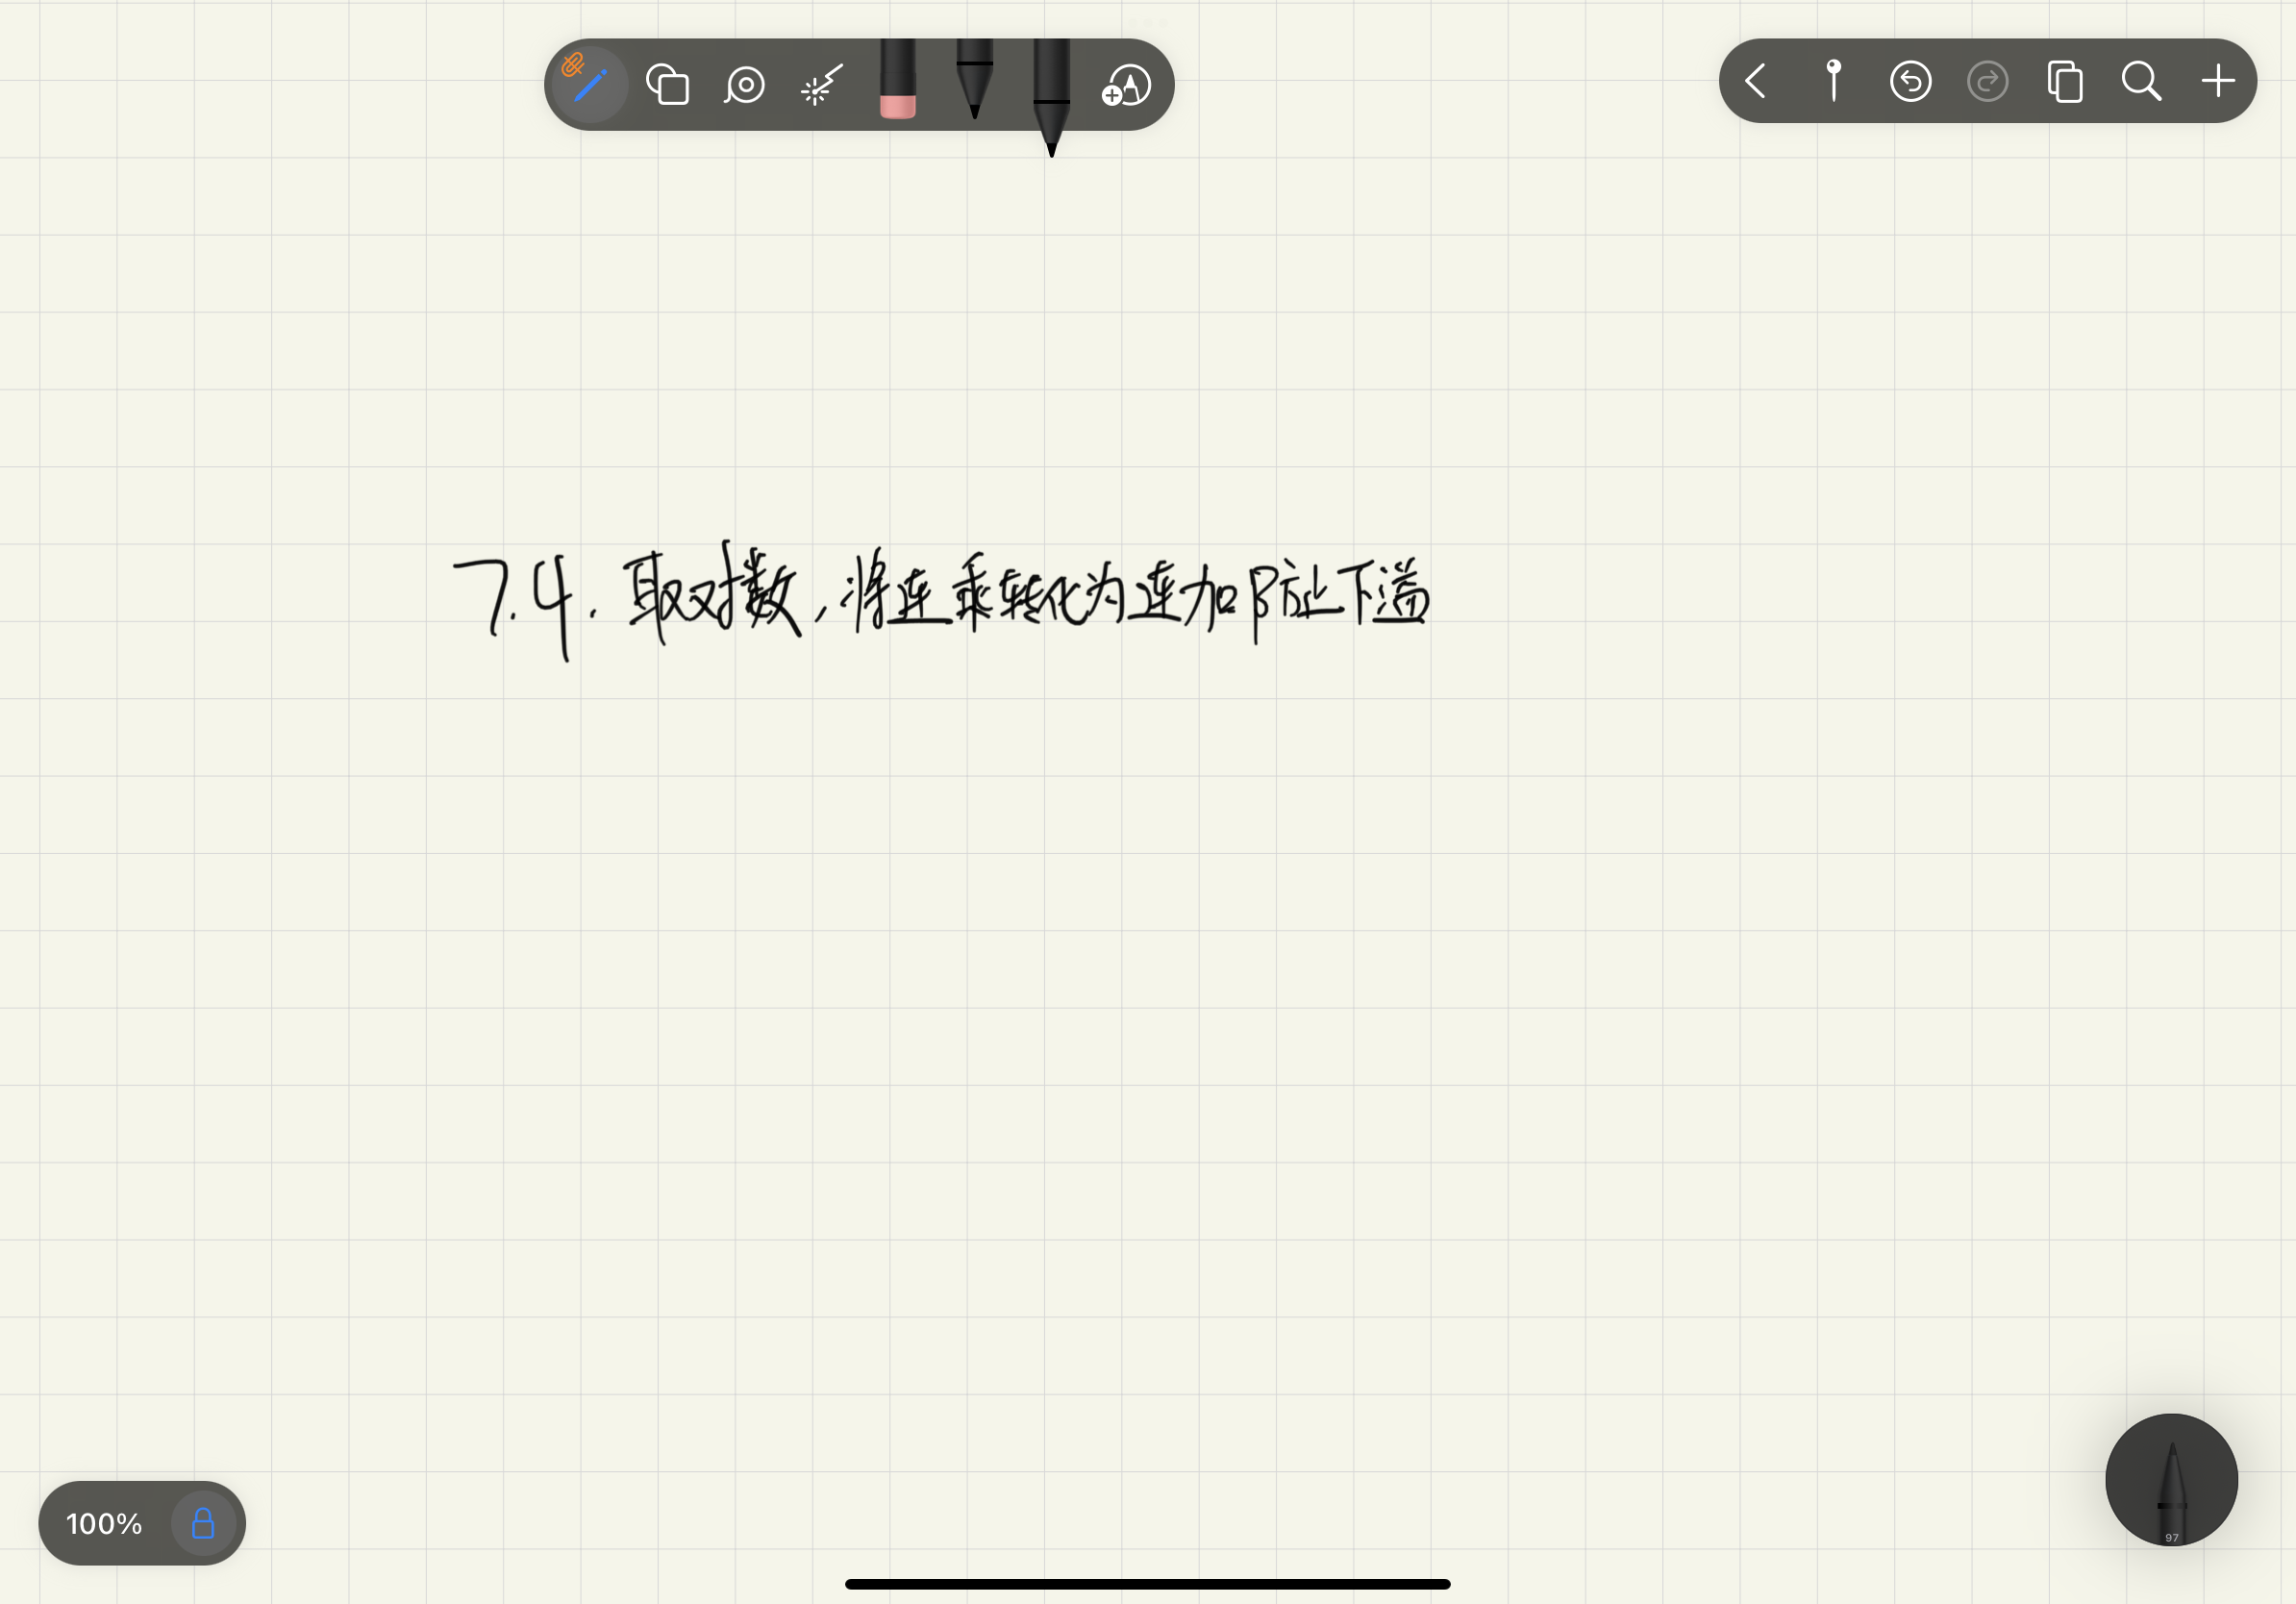 7.4. 取对数,将连乘转化为连加防止下溢
100%
97